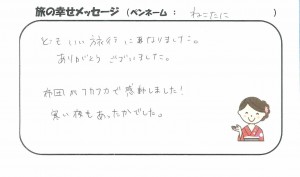 旅の幸せメッセージ (ペンネーム : ねこたに )
とてもいい旅行になりました。
ありがとうございました。
布団がフカフカで感動しました!
寒い夜もあったかでした。